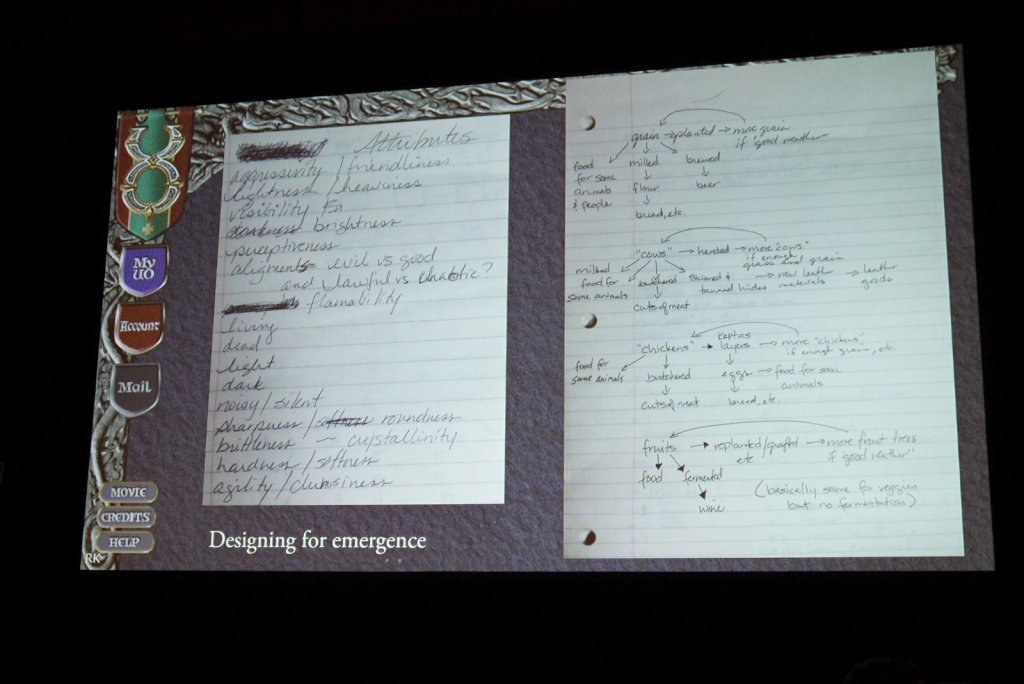 My
UO
Account
Mail
MOVIE
CREDITS
HELP
RK
Attributes
aggressivity / friendliness
lightness / heaviness
visibility
darkness brightness
perceptiveness
aligments evil vs good
and lawful vs chaotic?
flamability
living
dead
light
dark
noisy / silent
sharpness / softness roundness
brittleness ~ crystallinity
hardness / softness
agility / clumsiness
Designing for emergence
grain → planted → more grain
if "good weather"
food
for some
animals
& people
milled
↓
flour
↓
bread, etc.
brewed
↓
beer
"cows" → herded → more "cows"
if enough
grass and grain
milked
food for
some animals
butchered
↓
cuts of meat
skinned &
tanned hides
→ raw leather
materials
→ leather
goods
"chickens" → kept as
layers → more "chickens"
if enough grain, etc.
food for
some animals
butchered
↓
cuts of meat
eggs → food for some
animals
↓
bread, etc.
fruits → replanted/grafted → more fruit trees
etc if "good weather"
food fermented
wine
(basically same for veggies
but no fermentation)